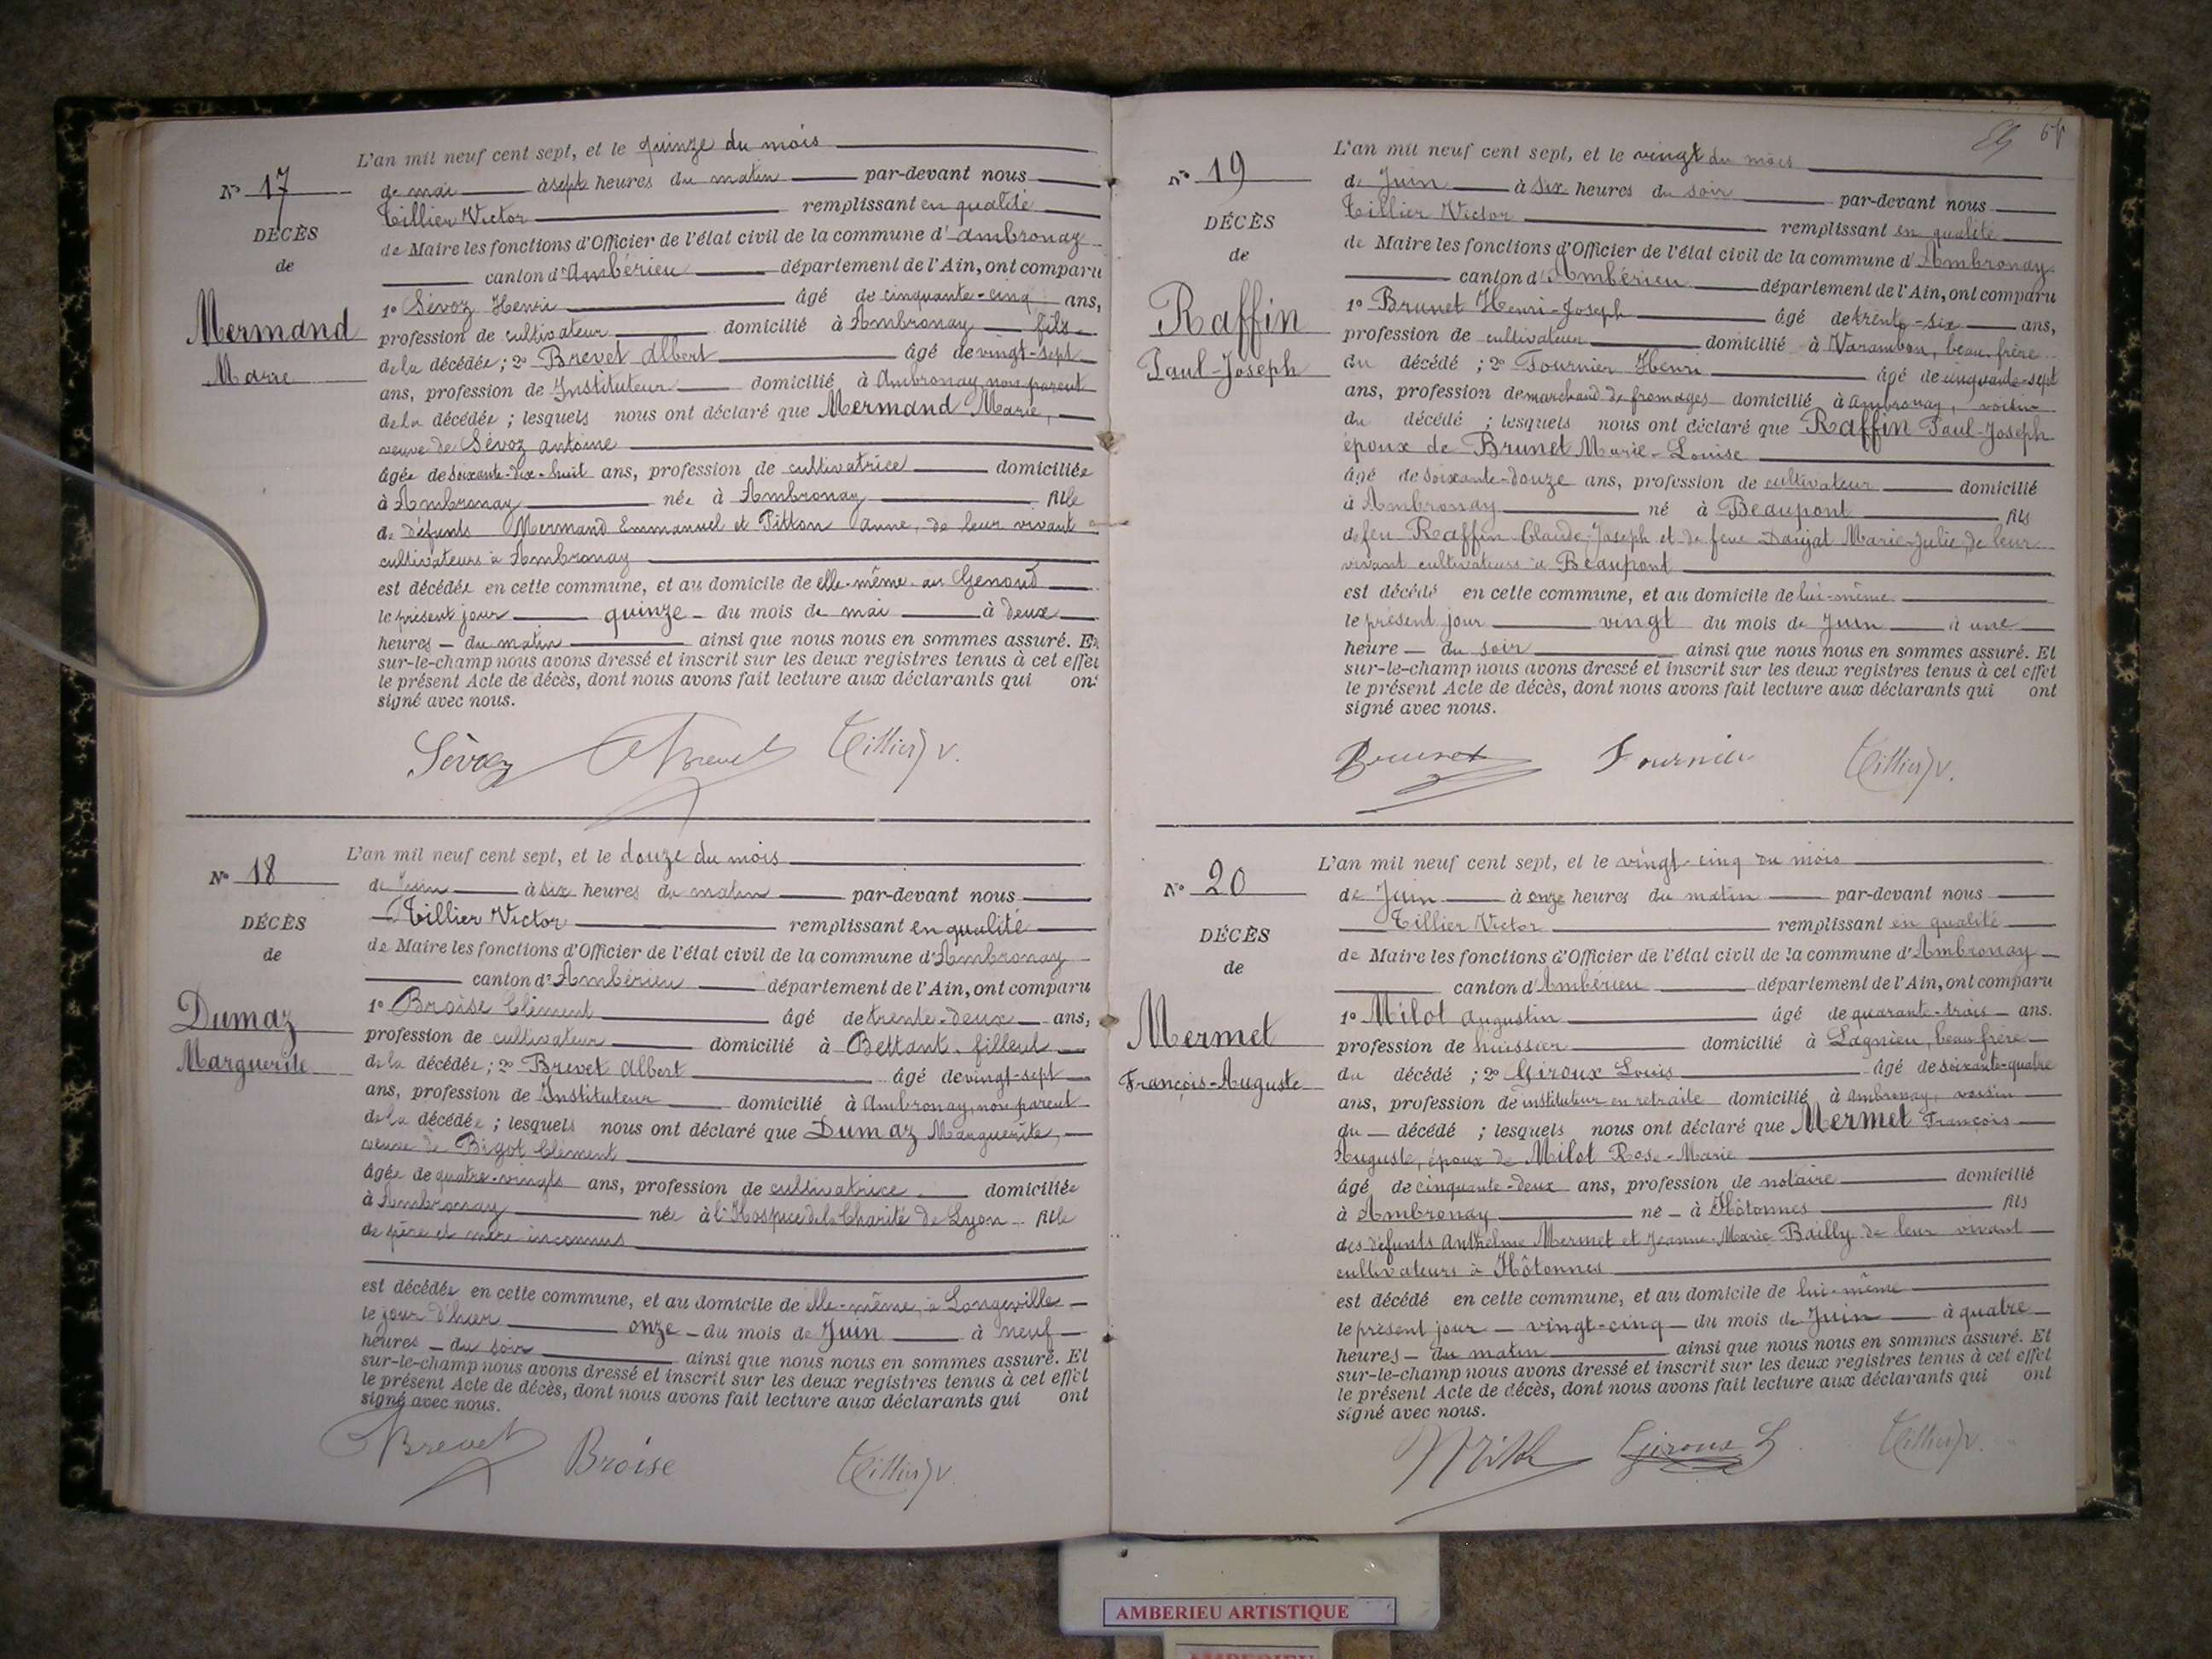 L'an mil neuf cent sept, et le quinze du mois
N° 17
de mai à sept heures du matin par-devant nous
Tillier Victor remplissant en qualité
DÉCÈS
de Maire les fonctions d'Officier de l'état civil de la commune d'Ambronay
de
canton d'Ambérieu département de l'Ain, ont comparu
1° Sévoz Henri âgé de cinquante-cinq ans,
Mermand
profession de cultivateur domicilié à Ambronay fils
de la décédée ; 2° Brevet Albert âgé de vingt-sept
Marie
ans, profession de Instituteur domicilié à Ambronay, non parent
de la décédée ; lesquels nous ont déclaré que Mermand Marie,
veuve de Sévoz Antoine
âgée de soixante-dix-huit ans, profession de cultivatrice domiciliée
à Ambronay née à Ambronay fille
de défunts Mermand Emmanuel et Pitton Anne, de leur vivant
cultivateurs à Ambronay
est décédée en cette commune, et au domicile de elle-même au Genoud
le présent jour quinze du mois de mai à deux
heures du matin ainsi que nous nous en sommes assuré. Et
sur-le-champ nous avons dressé et inscrit sur les deux registres tenus à cet effet
le présent Acte de décès, dont nous avons fait lecture aux déclarants qui ont
signé avec nous.
Sévoz ABrevet Tillier V.
L'an mil neuf cent sept, et le douze du mois
N° 18
de Juin à six heures du matin par-devant nous
Tillier Victor remplissant en qualité
DÉCÈS
de Maire les fonctions d'Officier de l'état civil de la commune d'Ambronay
de
canton d'Ambérieu département de l'Ain, ont comparu
1° Broise Clément âgé de trente-deux ans,
Dumaz
profession de cultivateur domicilié à Bettant, filleul
Marguerite
de la décédée ; 2° Brevet Albert âgé de vingt-sept
ans, profession de Instituteur domicilié à Ambronay, non parent
de la décédée ; lesquels nous ont déclaré que Dumaz Marguerite,
veuve de Bigot Clément
âgée de quatre-vingts ans, profession de cultivatrice domiciliée
à Ambronay née à l'Hospice de la Charité de Lyon fille
de père et mère inconnus
est décédée en cette commune, et au domicile de elle-même, à Longeville
le jour d'hier onze du mois de Juin à neuf
heures du soir ainsi que nous nous en sommes assuré. Et
sur-le-champ nous avons dressé et inscrit sur les deux registres tenus à cet effet
le présent Acte de décès, dont nous avons fait lecture aux déclarants qui ont
signé avec nous.
ABrevet Broise Tillier V.
L'an mil neuf cent sept, et le vingt du mois
N° 19
de Juin à six heures du soir par-devant nous
Tillier Victor remplissant en qualité
DÉCÈS
de Maire les fonctions d'Officier de l'état civil de la commune d'Ambronay
de
canton d'Ambérieu département de l'Ain, ont comparu
1° Brunet Henri-Joseph âgé de trente-six ans,
Raffin
profession de cultivateur domicilié à Varambon, beau frère
Paul-Joseph
du décédé ; 2° Fournier Henri âgé de cinquante-sept
ans, profession de marchand de fromages domicilié à Ambronay, voisin
du décédé ; lesquels nous ont déclaré que Raffin Paul-Joseph
époux de Brunet Marie-Louise
âgé de soixante-douze ans, profession de cultivateur domicilié
à Ambronay né à Beaupont fils
de feu Raffin Claude-Joseph et de feue Daujat Marie-Julie de leur
vivant cultivateurs à Beaupont
est décédé en cette commune, et au domicile de lui-même
le présent jour vingt du mois de Juin à une
heure du soir ainsi que nous nous en sommes assuré. Et
sur-le-champ nous avons dressé et inscrit sur les deux registres tenus à cet effet
le présent Acte de décès, dont nous avons fait lecture aux déclarants qui ont
signé avec nous.
Brunet Fournier Tillier V.
L'an mil neuf cent sept, et le vingt-cinq du mois
N° 20
de Juin à onze heures du matin par-devant nous
Tillier Victor remplissant en qualité
DÉCÈS
de Maire les fonctions d'Officier de l'état civil de la commune d'Ambronay
de
canton d'Ambérieu département de l'Ain, ont comparu
1° Milot Augustin âgé de quarante-trois ans.
Mermet
profession de huissier domicilié à Lagnieu, beau frère
François-Auguste
du décédé ; 2° Giroux Louis âgé de soixante-quatre
ans, profession de instituteur en retraite domicilié à Ambronay, voisin
du décédé ; lesquels nous ont déclaré que Mermet François
Auguste, époux de Milot Rose-Marie
âgé de cinquante-deux ans, profession de notaire domicilié
à Ambronay né à Hôtonnes fils
des défunts Anthelme Mermet et Jeanne-Marie Bailly de leur vivant
cultivateurs à Hôtonnes
est décédé en cette commune, et au domicile de lui-même
le présent jour vingt-cinq du mois de Juin à quatre
heures du matin ainsi que nous nous en sommes assuré. Et
sur-le-champ nous avons dressé et inscrit sur les deux registres tenus à cet effet
le présent Acte de décès, dont nous avons fait lecture aux déclarants qui ont
signé avec nous.
Giroux L Tillier V.
AMBERIEU ARTISTIQUE
AMBERIEU